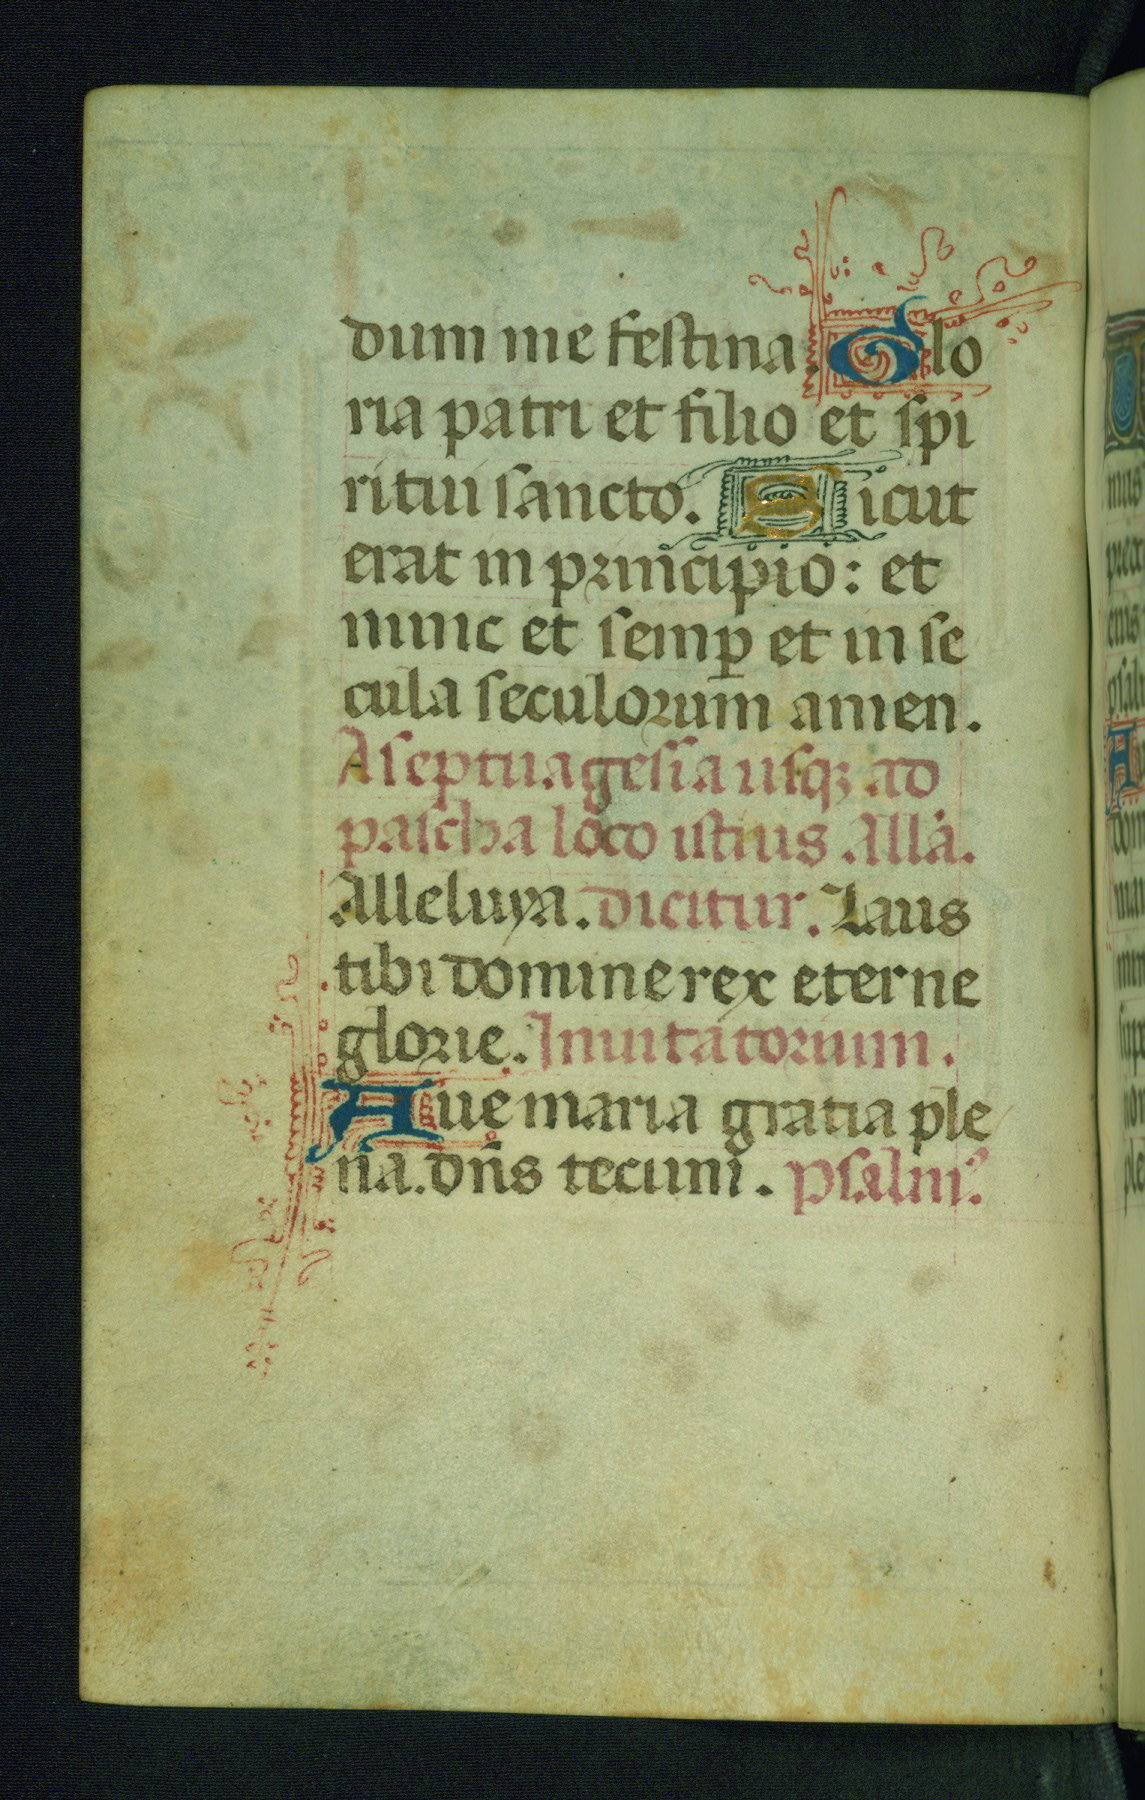 dum me festina. Glo
ria patri et filio et spi
ritui sancto. Sicut
erat in principio: et
nunc et semp et in se
cula seculorum amen.
A septuagesia usq; ad
pascha loco istius. Alla.
Alleluya. dicitur. Laus
tibi domine rex eterne
glorie. Inuitatorium.
Aue maria gratia ple
na. dn̄s tecum. psalm⁹.